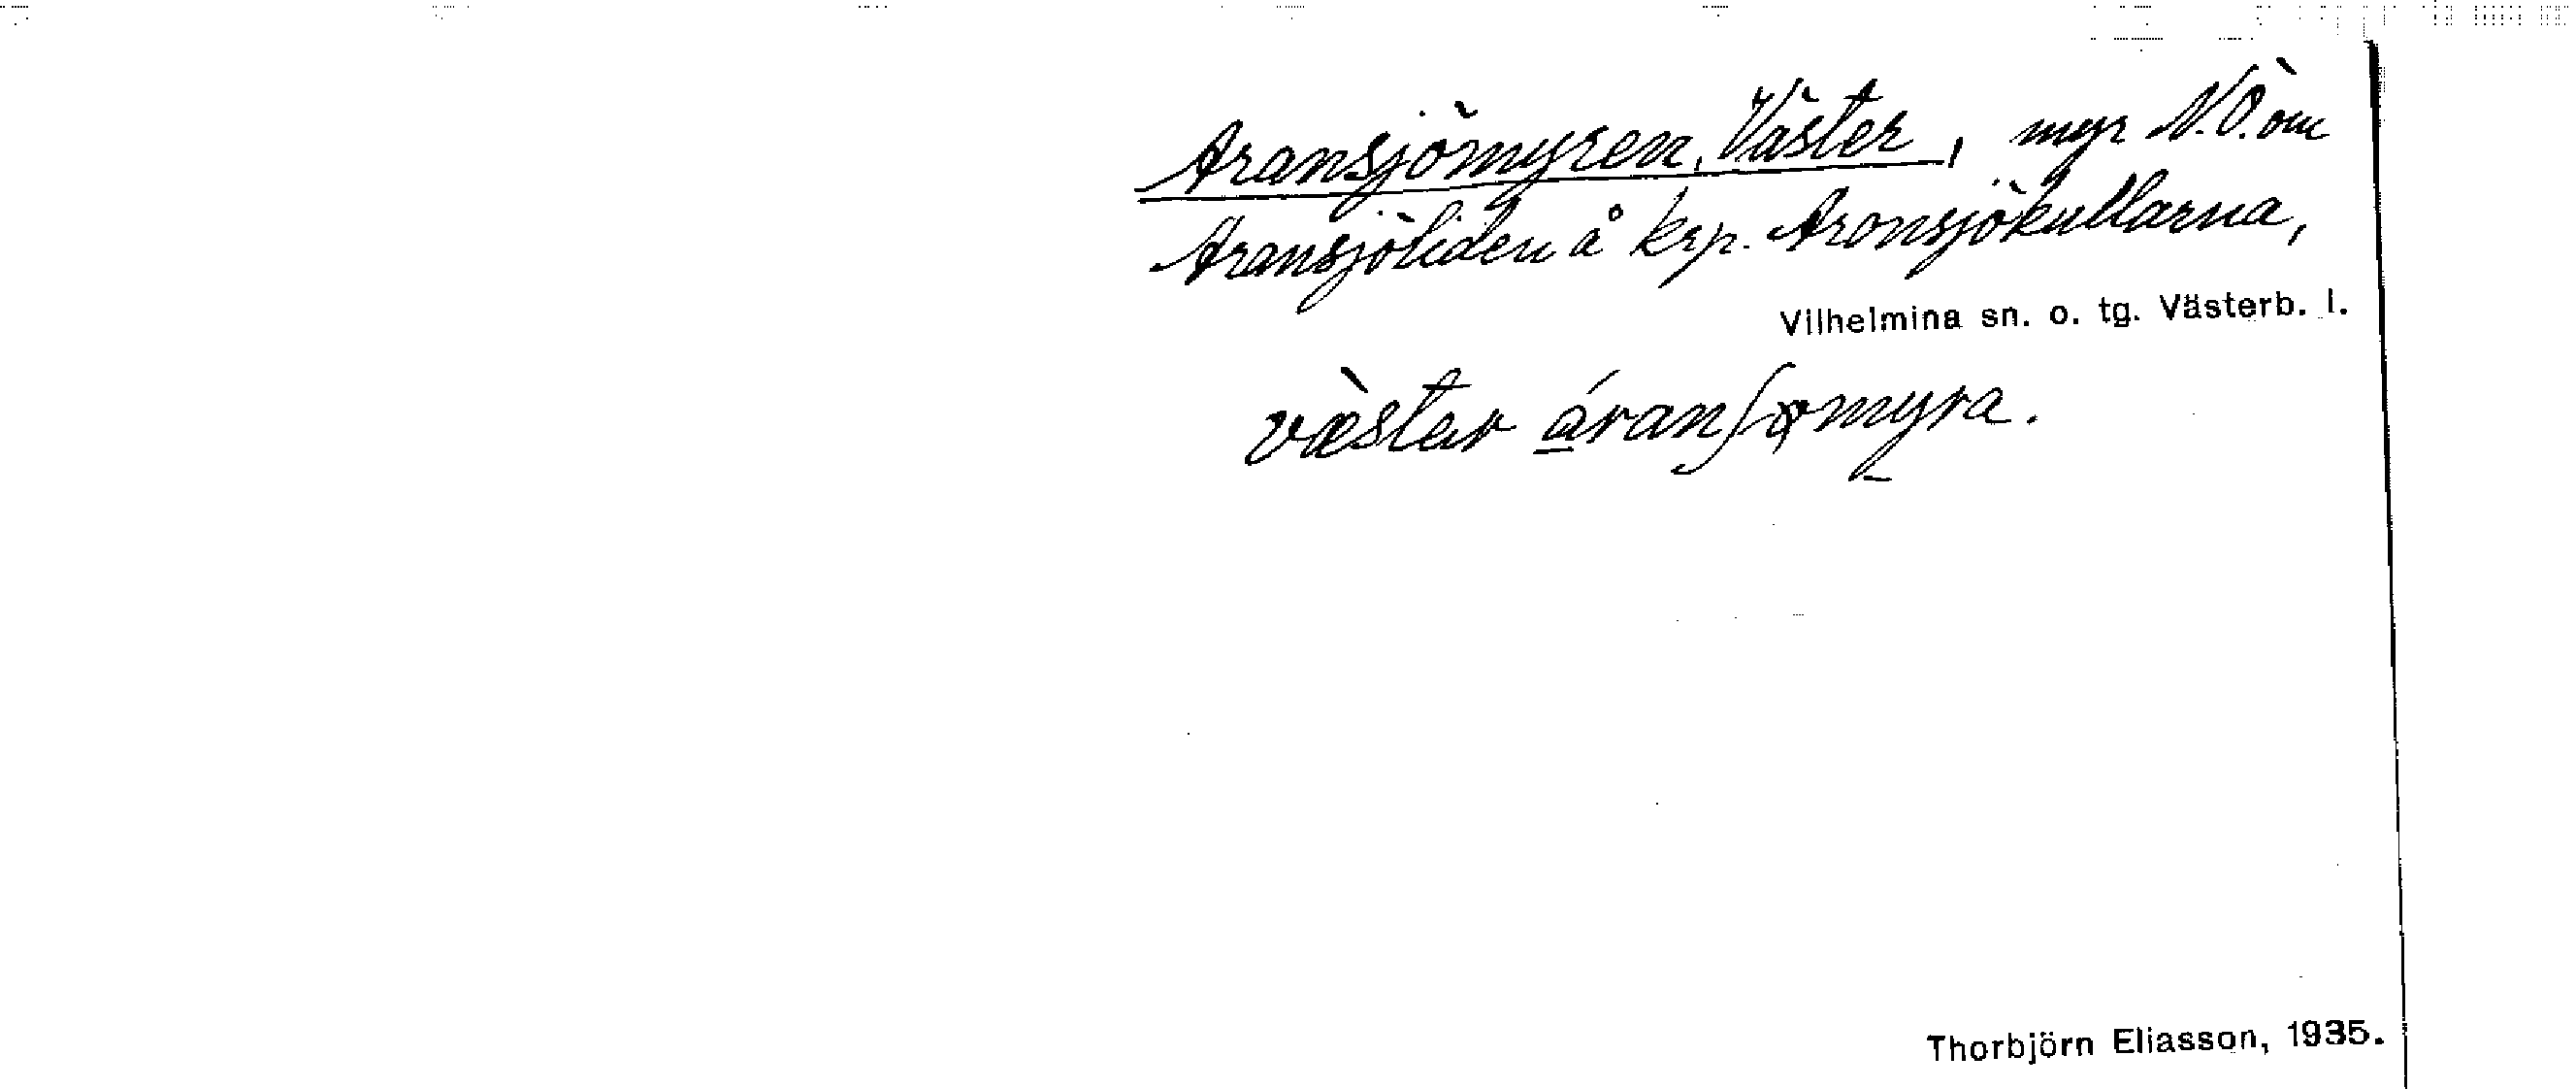 Aransjömyren, Väster, myr N.O. om
Aransjöliden å krp. Aronsjökullarna,
Vilhelmina sn. o. tg. Västerb. l.
vèstar áranʃømyra.
Thorbjörn Eliasson, 1935.